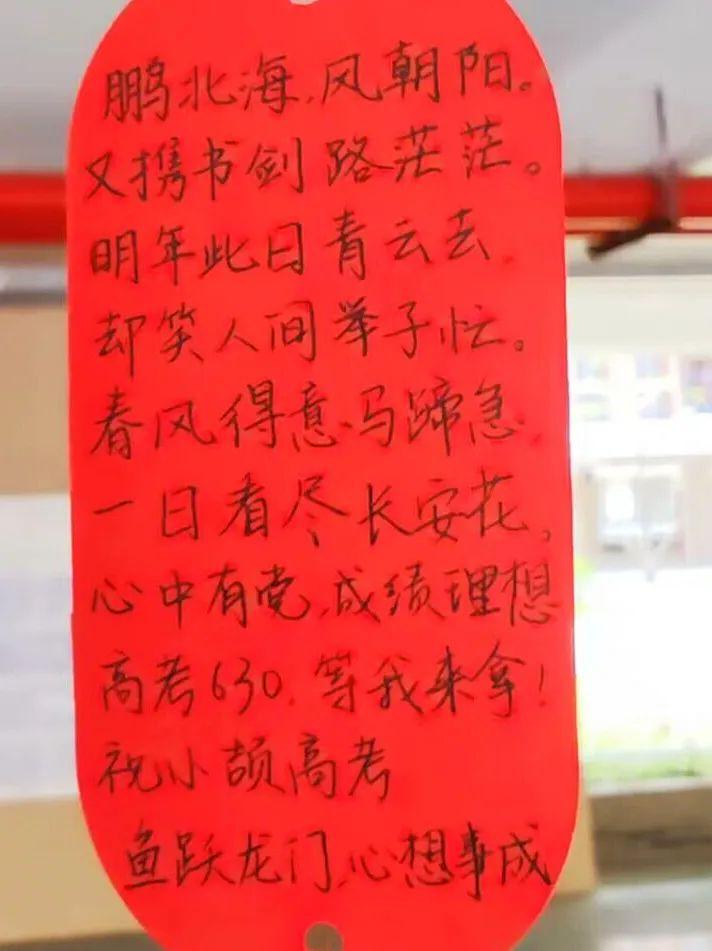 鹏北海,风朝阳。
又携书剑路茫茫。
明年此日青云去,
却笑人间举子忙。
春风得意马蹄急,
一日看尽长安花。
心中有党,成绩理想
高考630,等我来拿!
祝小颉高考
鱼跃龙门,心想事成